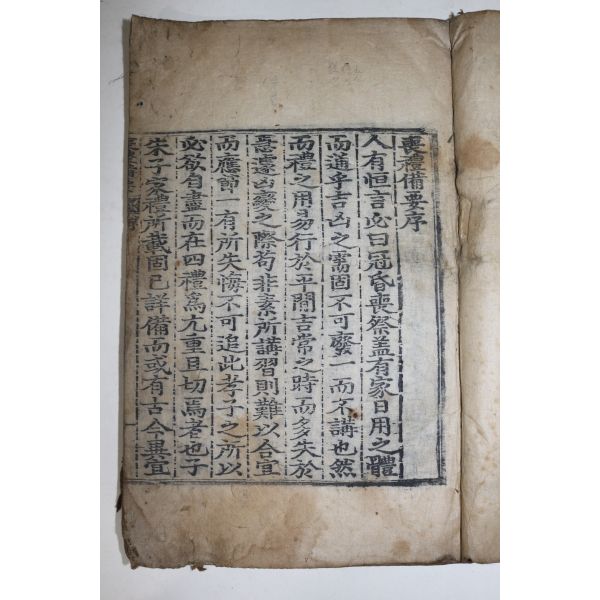 喪禮備要序
人有恒言必曰冠昏喪祭盖有家日用之體
而通乎吉凶之需固不可癈一而不講也然
而禮之用易行於平閒吉常之時而多失於
急遽凶變之際苟非素所講習則難以合宜
而應節一有所失悔不可追此孝子之所以
必欲自盡而在四禮爲尤重且切焉者也子
朱子家禮所載固已詳備而或有古今異宜